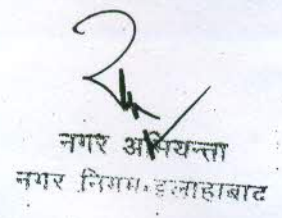 नगर अभियन्ता
नगर निगम, इलाहाबाद